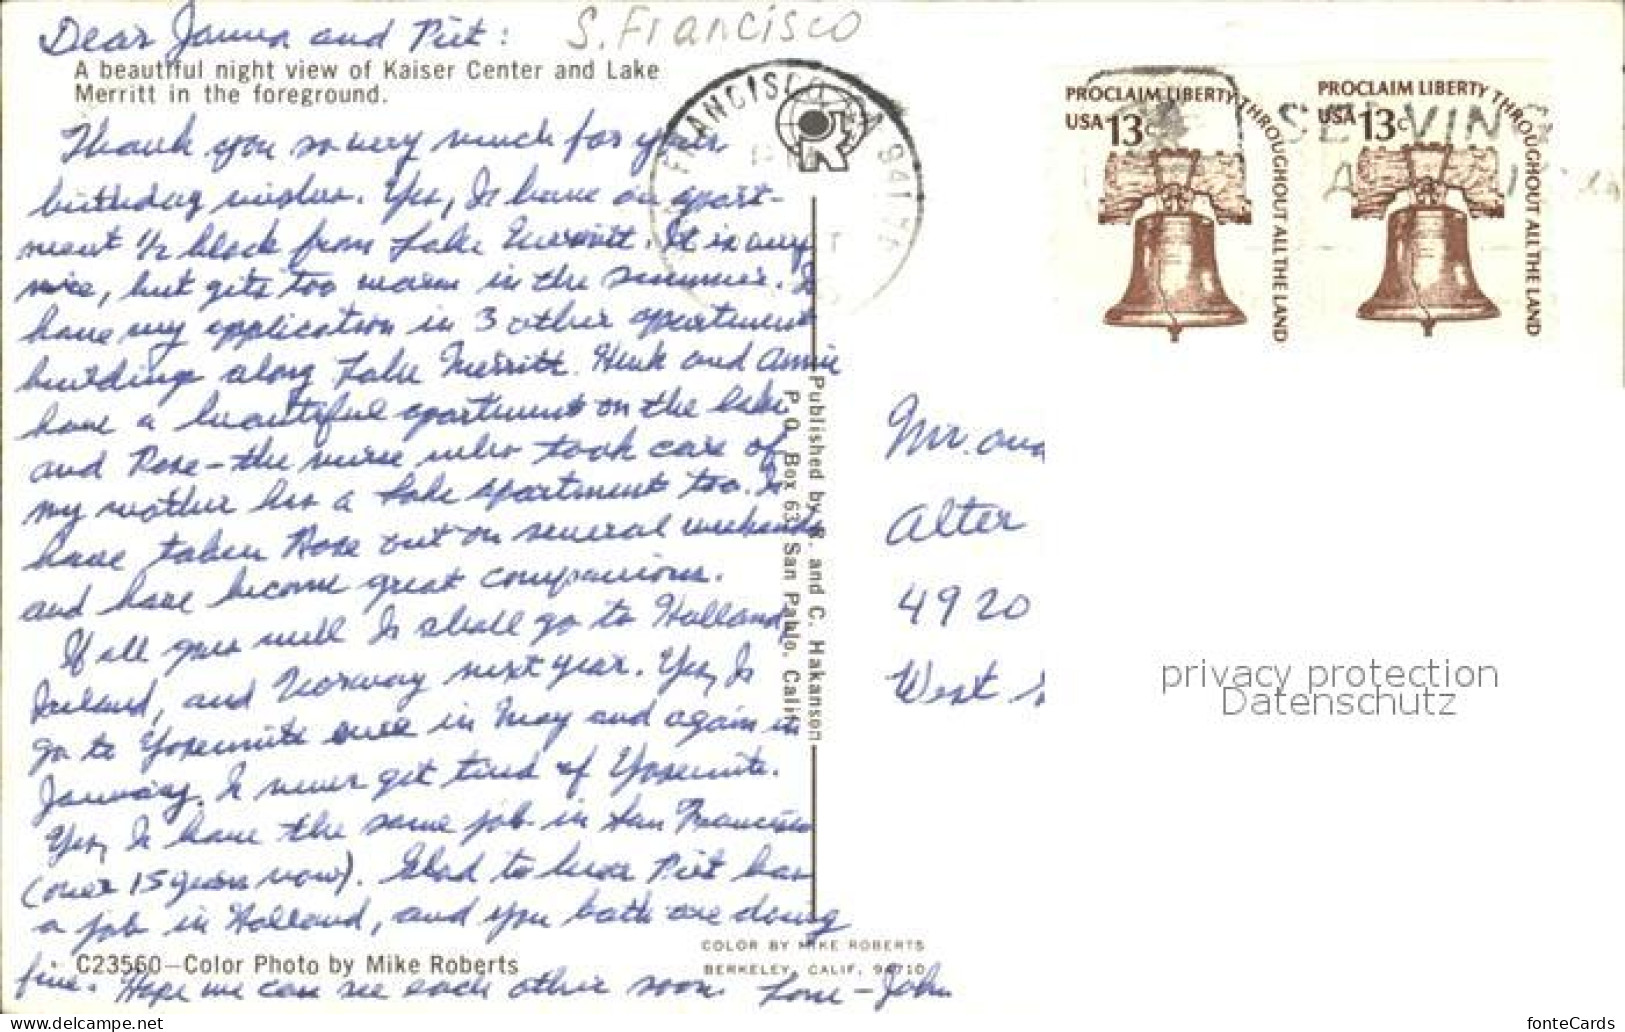 Dear Janna and Piet:
S. Francisco
A beautiful night view of Kaiser Center and Lake
Merritt in the foreground.
Thank you so very much for your
birthday wishes. Yes, I have an apart-
ment 1/2 block from Lake Merritt. It is very
nice, but gets too warm in the summer. I
have my application in 3 other apartment
buildings along Lake Merritt. Henk and Annie
have a beautiful apartment on the lake
and Rose - the nurse who took care of
my mother has a lake apartment too. I
have taken Rose out on several weekends
and have become great companions.
If all goes well I shall go to Holland,
Ireland, and Norway next year. Yes, I
go to Yosemite once in May and again in
January. I never get tired of Yosemite.
Yes, I have the same job in San Francisco
(over 15 years now). Glad to hear Piet has
a job in Holland, and you both are doing
fine. Hope we can see each other soon. Love - John
C23560—Color Photo by Mike Roberts
COLOR BY MIKE ROBERTS
BERKELEY, CALIF. 94710
Published by R. and C. Hakanson
P.O. Box 63 San Pablo, Calif.
FRANCISCO CA 941
PM
PROCLAIM LIBERTY THROUGHOUT ALL THE LAND
USA 13c
PROCLAIM LIBERTY THROUGHOUT ALL THE LAND
USA 13c
SERVING
Mr. and
Alter
4920
West
privacy protection
Datenschutz
fonteCards